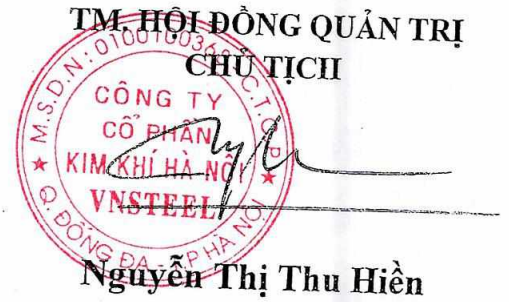 TM. HỘI ĐỒNG QUẢN TRỊ
CHỦ TỊCH
CÔNG TY
CỔ PHẦN
KIM KHÍ HÀ NỘI
VNSTEEL
Q. ĐỐNG ĐA - T.P HÀ NỘI
Nguyễn Thị Thu Hiền